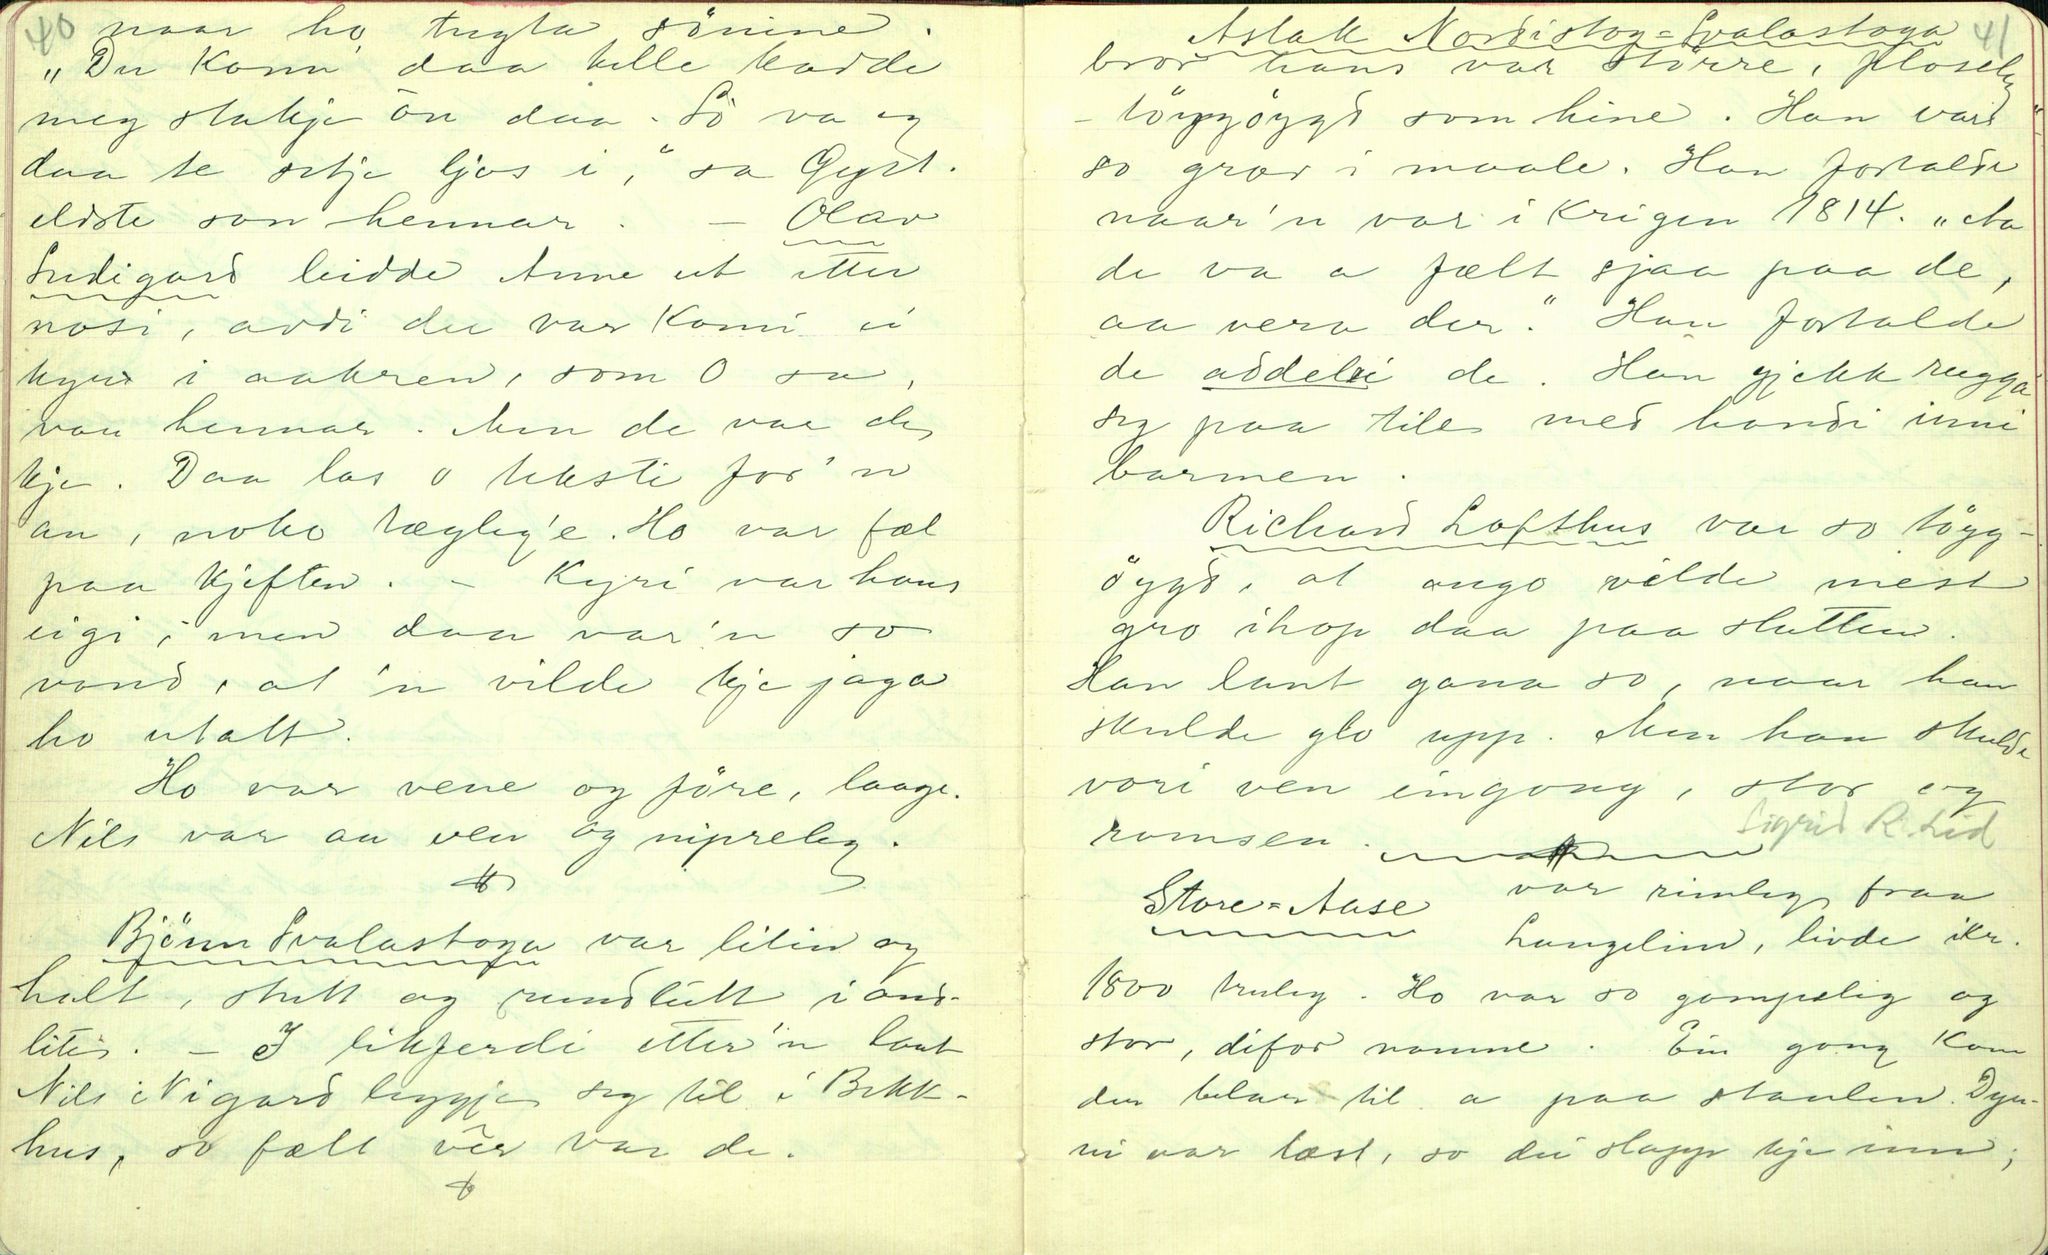 40
naar ho tugta sönine.
„Du kann daa kille kadde
meg stakje ön daa. So va eg
daa te setje ljos i," sa Gyst.
eldste son hennar. – Olav
Sudigard leidde Anne ut etter
nosi, avdi der var komi ei
kyr i aakren, som O sa,
var hennar. Men de var de
kje. Daa las O teksti for'n
an, noko tægleg'e. Ho var fæl
paa kjeften. – Kyri var hans
eigi; men daa var'n so
vond, at 'n vilde kje jaga
ho utatt.
Ho var vene og före, laage.
Nils var au ven og nipreleg.
Björn Svalastoga var litin og
halt, stutt og rundlütt i and-
litei. – I likferdi etter'n laut
Nils Nigard leggje seg til i Bekk-
hus, so fælt vêr var de.
41
Aslak Nordistog-Svalastoga
bror hans var större, floseleg
– töggöygd som hine. Han var
so grov i maale. Han fortalde
naar'n var i krigen 1814. „Aa
de va a fælt sjaa paa de,
aa vera der." Han fortalde
de addelei de. Han gjekk rugga
seg paa tile med handi inni
barmen.
Richard Lofthus var so tögg-
öygd, at augo vilde mest
gro ihop daa paa slutten.
Han laut gana so, naar han
skulde glo upp. Men han skulde
vori ven eingong, stor og
ramsen.
Sigrid R. Lid
Store-Aase var rimeleg fraa
Langelim, livde ikr.
1800 truleg. Ho var so gampeleg og
stor, difor namne. Ein gong kom
der belar til a paa staulen. Dyn-
ni var læst, so dei slapp kje inn;